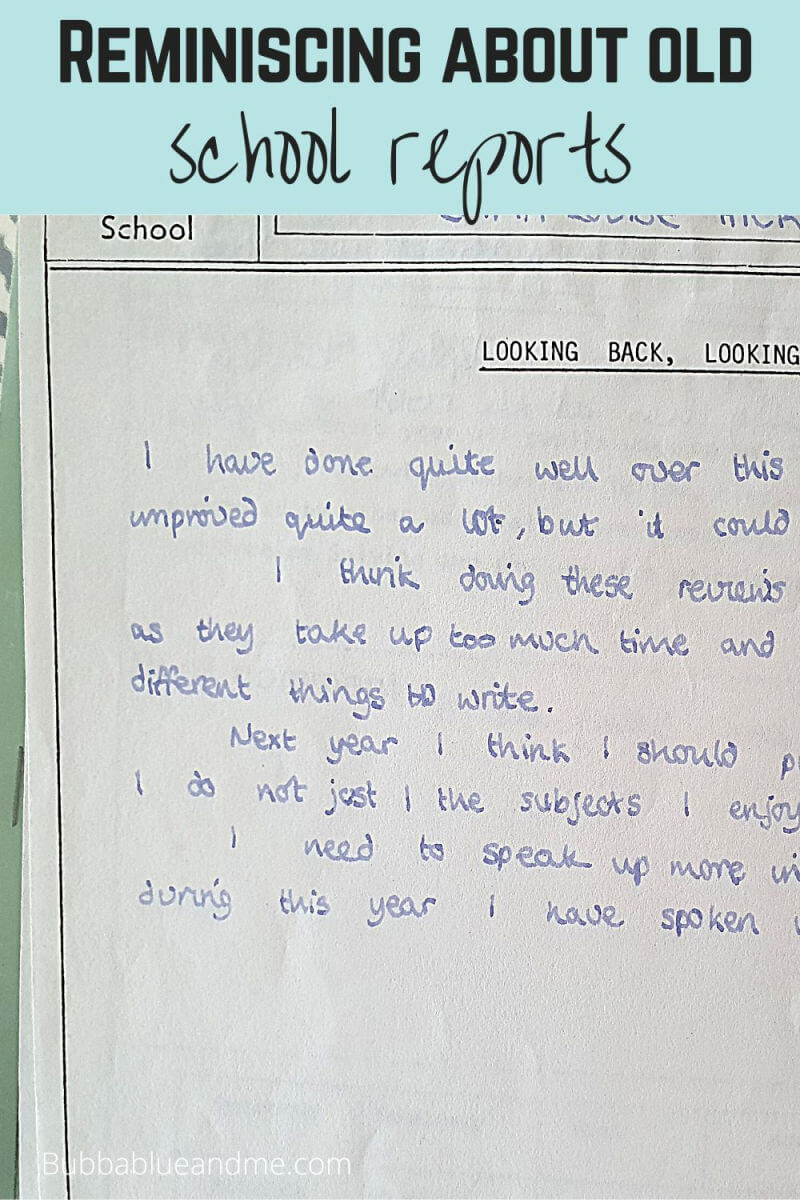 REMINISCING ABOUT OLD
school reports
School
LOOKING BACK, LOOKING
I have done quite well over this
improved quite a lot, but it could
I think doing these reviews
as they take up too much time and
different things to write.
Next year I think I should
I do not just I the subjects I enjoy
I need to speak up more
during this year I have spoken
Bubbablueandme.com